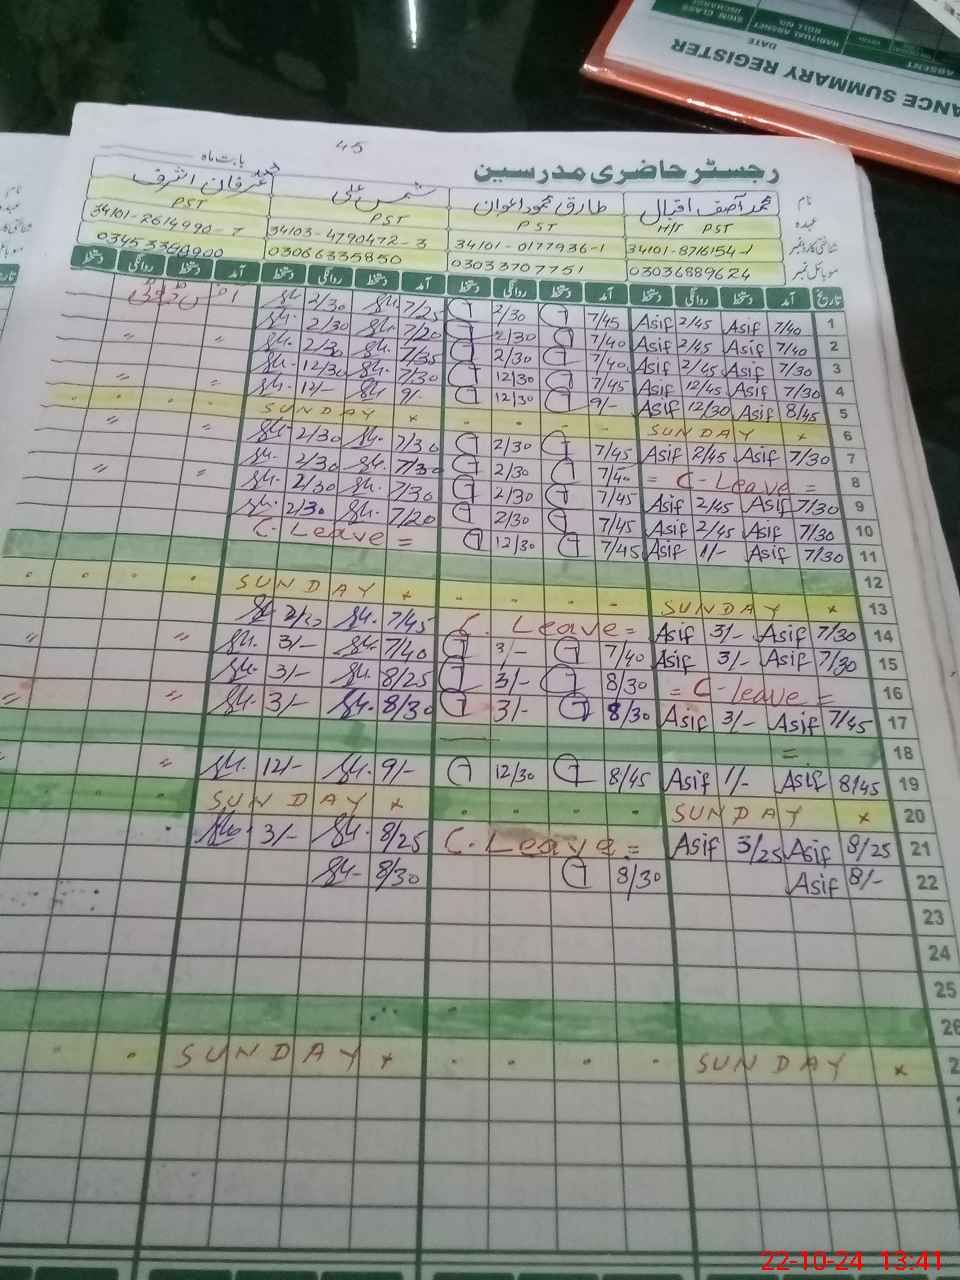 ANCE SUMMARY REGISTER
DATE
ABSENT
HABITUAL ABSENT
ROLL NO.
SIGN CLASS
INCHARGE
45
رجسٹر حاضری مدرسین
بابت ماہ
نام محمد آصف اقبال طارق محمود اعوان شمس علی محمد عرفان اشرف
عہدہ H/T PST PST PST PST
شناختی کارڈ نمبر 34101-8716154-1 34101-0177936-1 34103-4790472-3 34101-2614990-7
موبائل نمبر 03036889624 03033707751 03066335850 03453360900
تاریخ آمد دستخط روانگی دستخط آمد دستخط روانگی دستخط آمد دستخط روانگی دستخط آمد دستخط روانگی دستخط
1 7/40 Asif 2/45 Asif 7/45 2/30 7/25 2/30
2 7/40 Asif 2/45 Asif 7/40 2/30 7/20 2/30 "
3 7/30 Asif 2/45 Asif 7/40 2/30 7/35 2/30
4 7/30 Asif 12/45 Asif 7/45 12/30 7/30 12/30 "
5 8/45 Asif 12/30 Asif 9/- 12/30 9/- 12/-
6 SUNDAY × SUNDAY ×
7 7/30 Asif 2/45 Asif 7/45 2/30 7/30 2/30 "
8 = C-Leave = 7/40 2/30 7/30 2/30
9 7/30 Asif 2/45 Asif 7/45 2/30 7/30 2/30 "
10 7/30 Asif 2/45 Asif 7/45 2/30 7/20 2/30
11 7/30 Asif 1/- Asif 7/45 12/30 C-Leave =
12
13 SUNDAY × SUNDAY ×
14 7/30 Asif 3/- Asif C. Leave = 7/45
15 7/30 Asif 3/- Asif 7/40 3/- 7/40 3/- "
16 = C-leave = 8/30 3/- 8/25 3/-
17 7/45 Asif 3/- Asif 8/30 3/- 8/30 3/- "
18 =
19 8/45 Asif 1/- Asif 8/45 12/30 9/- 12/- "
20 SUNDAY × SUNDAY ×
21 8/25 Asif 3/25 Asif C. Leave = 8/25 3/-
22 8/- Asif 8/30 8/30
23
24
25
26
2 SUNDAY × SUNDAY ×
22-10-24 13:41